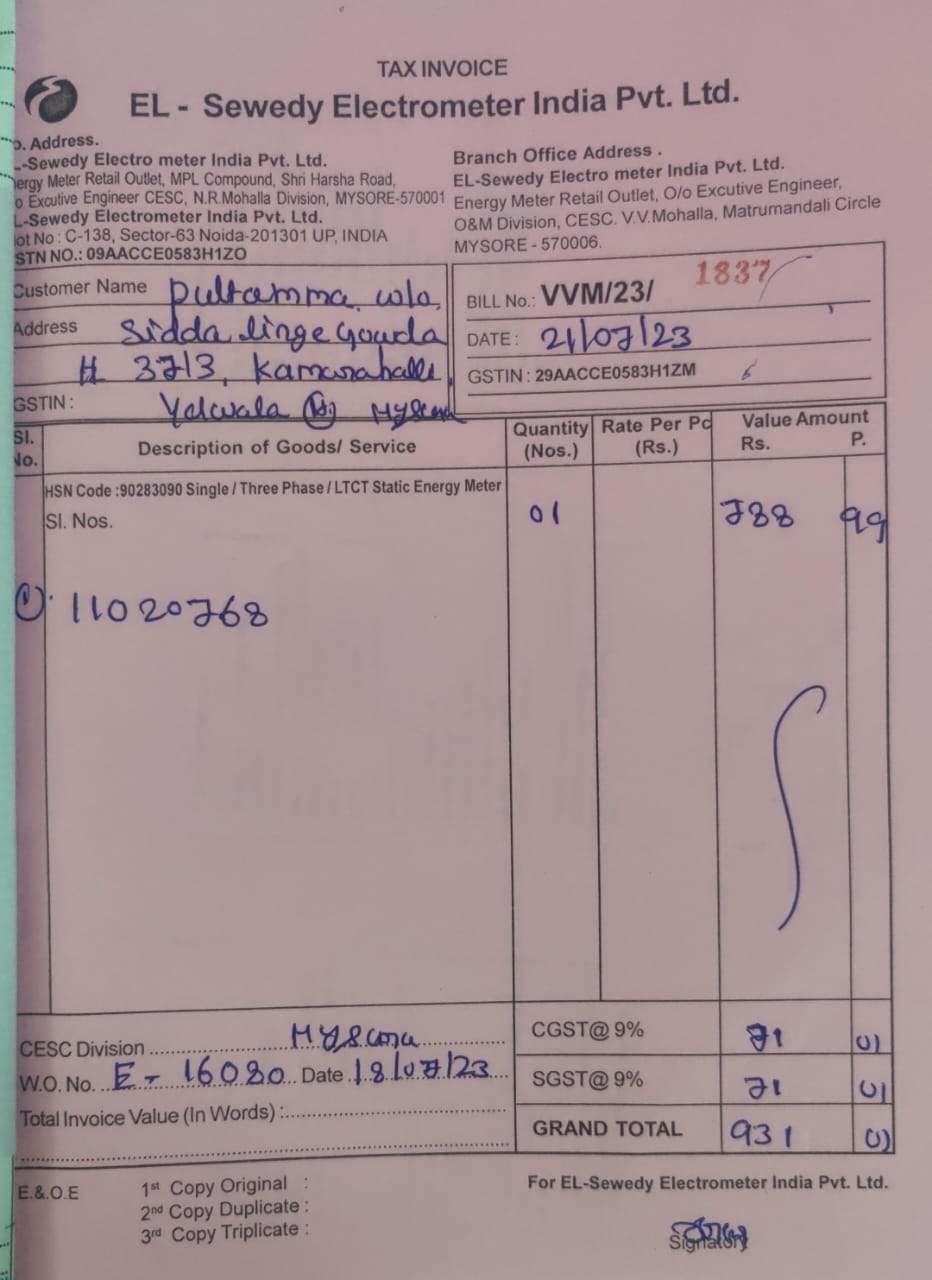 TAX INVOICE
EL - Sewedy Electrometer India Pvt. Ltd.
o. Address.
-Sewedy Electro meter India Pvt. Ltd.
ergy Meter Retail Outlet, MPL Compound, Shri Harsha Road,
o Excutive Engineer CESC, N.R.Mohalla Division, MYSORE-570001
L-Sewedy Electrometer India Pvt. Ltd.
lot No : C-138, Sector-63 Noida-201301 UP, INDIA
STN NO.: 09AACCE0583H1ZO
Branch Office Address .
EL-Sewedy Electro meter India Pvt. Ltd.
Energy Meter Retail Outlet, O/o Excutive Engineer,
O&M Division, CESC. V.V.Mohalla, Matrumandali Circle
MYSORE - 570006.
Customer Name w/o
Address Sidda linge gowda
H 37/3,
GSTIN : Yelwala
BILL No.: VVM/23/ 1837
DATE : 21/07/23
GSTIN : 29AACCE0583H1ZM
Sl. No. Description of Goods/ Service Quantity (Nos.) Rate Per Pc (Rs.) Value Amount Rs. P.
HSN Code :90283090 Single / Three Phase / LTCT Static Energy Meter
Sl. Nos. 01 788 99
1) 11020768
CESC Division
W.O. No. E - 16080 Date 18/07/23
Total Invoice Value (In Words) :
CGST@ 9% 71 01
SGST@ 9% 71 01
GRAND TOTAL 931 01
E.&.O.E
1st Copy Original :
2nd Copy Duplicate :
3rd Copy Triplicate :
For EL-Sewedy Electrometer India Pvt. Ltd.
Signatory